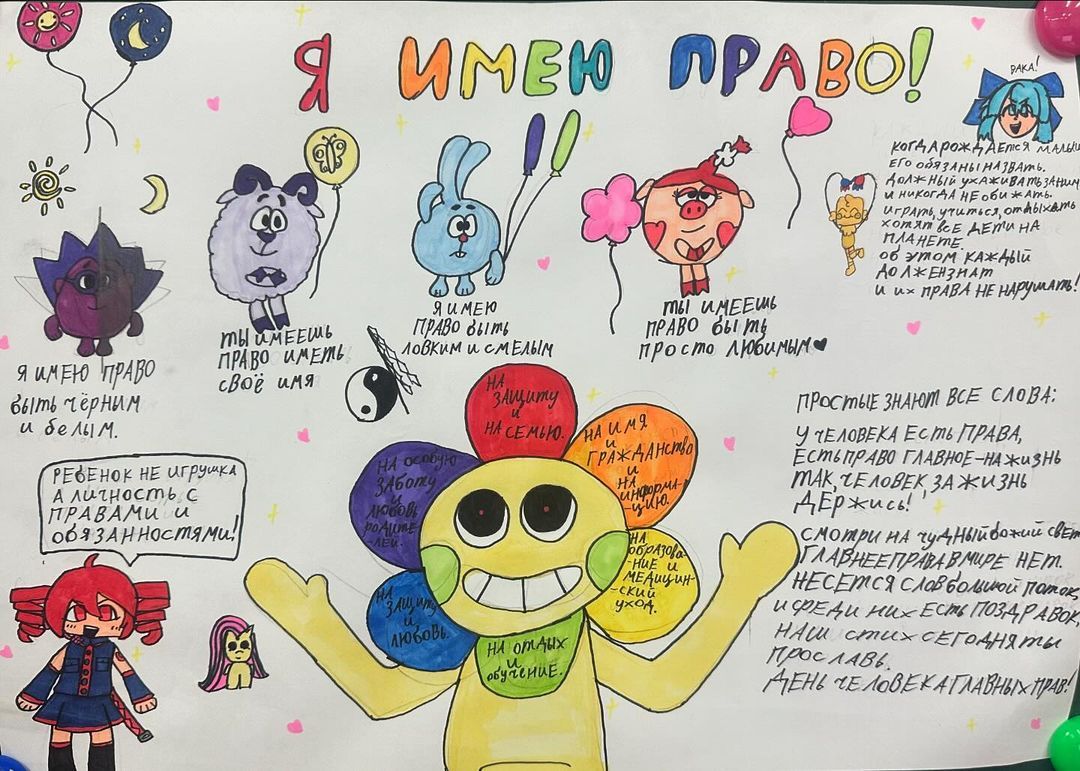 Я ИМЕЮ ПРАВО!
БАКА!
КОГДА РОЖДАЕТСЯ МАЛЫ
ЕГО ОБЯЗАНЫ НАЗВАТЬ.
ДОЛЖНЫЙ УХАЖИВАТЬ ЗА НИМ
И НИКОГДА НЕ ОБИЖАТЬ.
ИГРАТЬ, УЧИТЬСЯ, ОТДЫХАТЬ
ХОТЯТ ВСЕ ДЕТИ НА
ПЛАНЕТЕ.
ОБ ЭТОМ КАЖДЫЙ
ДОЛЖЕН ЗНАТ
И ИХ ПРАВА НЕ НАРУШАТЬ!
Я ИМЕЮ ПРАВО
быть чёрным
и белым.
ТЫ ИМЕЕШЬ
ПРАВО ИМЕТЬ
СВОЁ ИМЯ
Я ИМЕЮ
ПРАВО быть
ЛОВКИМ И СМЕЛЫМ
ТЫ ИМЕЕШЬ
ПРАВО быть
ПРОСТО ЛЮБИМЫМ
РЕБЕНОК НЕ ИГРУШКА
А ЛИЧНОСТЬ С
ПРАВАМИ И
ОБЯЗАННОСТЯМИ!
НА
ЗАЩИТУ
И
НА СЕМЬЮ.
НА ИМЯ
И
ГРАЖДАНСТВО
И
НА
ИНФОРМА-
-ЦИЮ.
НА ОСОБУЮ
ЗАБОТУ
И
ЛЮБОВЬ
РОДИТЕ-
-ЛЕЙ.
НА
ОБРАЗОВА-
-НИЕ И
МЕДИЦИН-
-СКИЙ
УХОД.
НА
ЗАЩИТУ
И
ЛЮБОВЬ.
НА ОТДЫХ
И
обучение.
ПРОСТЫЕ ЗНАЮТ ВСЕ СЛОВА:
У ЧЕЛОВЕКА ЕСТЬ ПРАВА,
ЕСТЬ ПРАВО ГЛАВНОЕ-НА ЖИЗНЬ
ТАК, ЧЕЛОВЕК, ЗА ЖИЗНЬ
ДЕРЖИСЬ!
СМОТРИ НА ЧУДНЫЙ БОЖИЙ СВЕТ
ГЛАВНЕЕ ПРАВА В МИРЕ НЕТ.
НЕСЕТСЯ СЛОВ БОЛЬШОЙ ПОТОК,
И СРЕДИ НИХ ЕСТЬ ПОЗДРАВОК,
НАШ СТИХ СЕГОДНЯ ТЫ
ПРОСЛАВЬ.
ДЕНЬ ЧЕЛОВЕКА ГЛАВНЫХ ПРАВ!